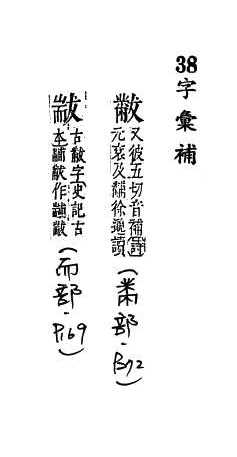 38字彙補
又彼五切音補詩
元袞及黼徐邈讀
(黹部·P172)
古黻字史記古
本黼黻作
(而部·P169)